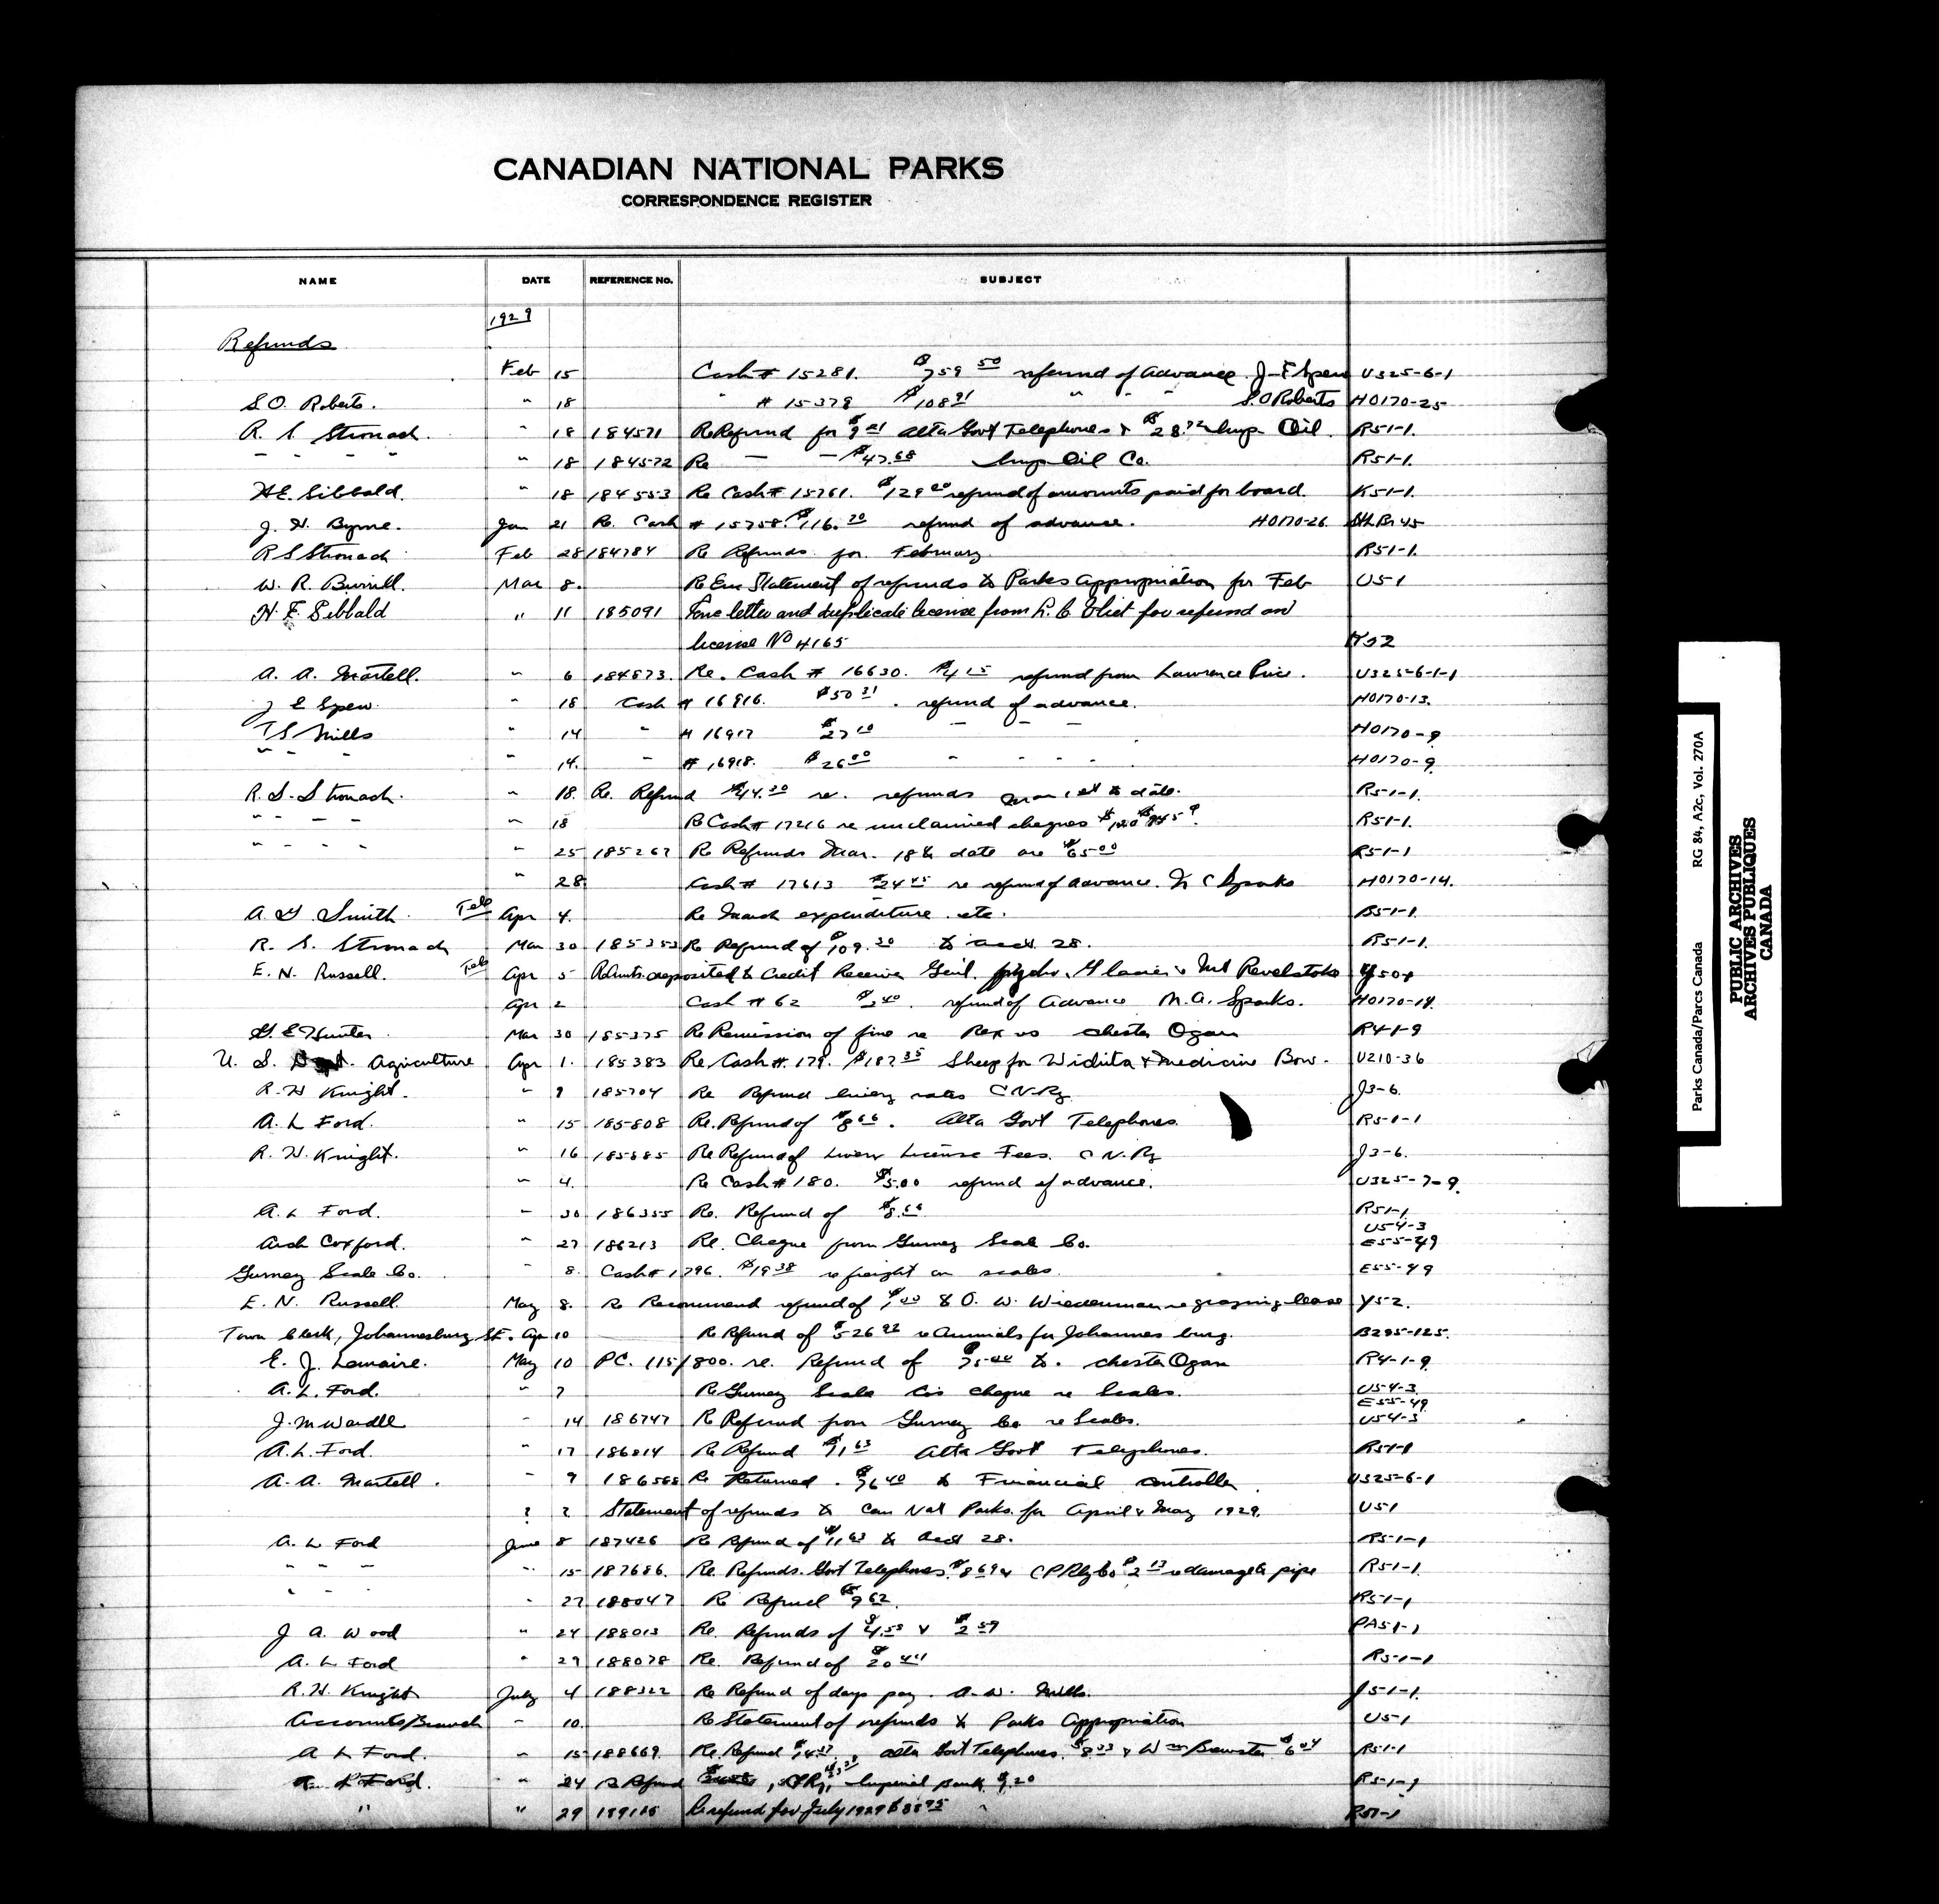 CANADIAN NATIONAL PARKS
CORRESPONDENCE REGISTER
NAME DATE REFERENCE No. SUBJECT
1929
Refunds
Feb 15 Cash # 15281. $759 50 refund of Advance J-E Spew U325-6-1
S.O. Roberts. " 18 " # 15379 $108 91 " - - S.O Roberts H0170-25
R. S. Stronach. " 18 184571 Re Refund for $9 21 Alta Govt Telephones & $28.72 Imp Oil R51-1.
- - - - " 18 184572 Re — — $47.68 Imp Oil Co. R51-1.
H.E. Sibbald. " 18 184553 Re Cash # 15761. $129 00 refund of amounts paid for board. K51-1.
J. H. Byrne. Jan 21 Re. Cash # 15758. $116. 20 refund of advance. H0170-26
R S Stronach Feb 28 184784 Re Refunds for February R51-1.
W. R. Burrill. Mar 8. Re Enc Statement of refunds to Parks Appropriation for Feb U5-1
H. E. Sibbald " 11 185091 Enc letter and duplicate license from L. C. Vliet for refund on
license No H165 K52
A. A. Martell. " 6 184873. Re. Cash # 16630. $4 15 refund from Lawrence Price. U325-6-1-1
J E Spew. " 18 Cash # 16916. $50 31. refund of advance. H0170-13.
T S Mills " 14 " # 16917 $27 10 — — — H0170-9
" " - " 14. - # 16918. $26 00 - - - - H0170-9
R. S. Stronach. " 18. Re. Refund $44.30 re. refunds Mar 1st to date. R51-1.
" " - - " 18 Re Cash # 17216 re unclaimed cheques R51-1.
" - - - " 25 185267 Re Refunds Mar. 18 to date are $65 00 R51-1
" 28 Cash # 17613 $24 45 re refund of advance. N C Sparks H0170-14.
A G Smith. Tels Apr 4. Re March expenditure. etc. B51-1.
R. S. Stronach Mar 30 185353 Re Refund of $109.30 to acct 28. R51-1.
E. N. Russell. Tels Apr 5 Re Amts. deposited to Credit Receiver Genl. Glacier & Mt Revelstoke Y50+
Apr 2 Cash # 62 $2 40. refund of Advance N. A. Sparks. H0170-14.
G. E. Hunter. Mar 30 185375 Re Remission of fine re Rex vs Chester Ogan R4-1-9
U. S. Dept. Agriculture Apr 1. 185383 Re. Cash #. 179. $187 35 Sheep for Wichita & Medicine Bow. U210-36
R. H Knight. " 9 185704 Re Refund livery rates C N. Ry J3-6.
A. L Ford. " 15 185808 Re. Refund of $8 66. Alta Govt Telephones R51-1
R. H. Knight. " 16 185885 Re Refund of Livery License Fees. C N. Ry J3-6.
" 4. Re Cash # 180. $5.00 refund of advance. U325-7-9.
A. L Ford. " 30 186355 Re. Refund of $8.66 R51-1
Arch Coxford. " 27 186213 Re. Cheque from Gurney Scale Co. U54-3 E55-49
Gurney Scale Co. " 8. Cash # 1796. $19 38 re freight on scales. E55-49
E. N. Russell. May 8. Re Recommend refund of $1 00 to O. W. Wiederman re grazing lease Y52.
Town Clerk, Johannesburg Apr 10 Re Refund of $526 92 re Animals for Johannesburg. B295-125.
E. J. Lemaire. May 10 P.C. 115/800. re. Refund of $75 00 to. Chester Ogan R4-1-9
A. L. Ford. " 7 Re Gurney Scale Co's cheque re Scales. U54-3 E55-49
J. M Wardle - 14 186747 Re Refund from Gurney Co re Scales. U54-3
A. L. Ford. " 17 186814 Re Refund $1 63 Alta Govt Telephones. R51-1
A. A. Martell. - 9 186568 Re Returned. $76 40 to Financial Controller. U325-6-1
? ? Statement of refunds to Can Nat Parks. for April & May 1929. U51
A. L Ford June 8 187426 Re Refund of $11 63 to acct 28. R51-1
- - - " 15 187686. Re. Refunds. Govt Telephones. $8 69 & C P Rly Co $2 13 re damage to pipe R51-1
" - - " 27 188047 Re Refund $9 62. R51-1
J A. Wood " 24 188013 Re. Refunds of $4.53 & $2 59 PA51-1
A. L Ford " 29 188078 Re. Refund of $20 44 R51-1
R. H. Knight July 4 188322 Re Refund of days pay. A. W. Mills. J51-1.
Accounts Branch " 10. Re Statement of refunds to Parks Appropriation U5-1
A L Ford. " 15 188669. Re. Refund $14.37, Alta Govt Telephones. $8 33 & Wm Brewster $6 04 R51-1
A. L Ford. " 24 Re Refund Imperial Bank $.20 R51-1
" " 29 189115 Re refund for July 1929 $88 95 R51-1
Parks Canada/Parcs Canada RG 84, A2c, Vol. 270A
PUBLIC ARCHIVES
ARCHIVES PUBLIQUES
CANADA